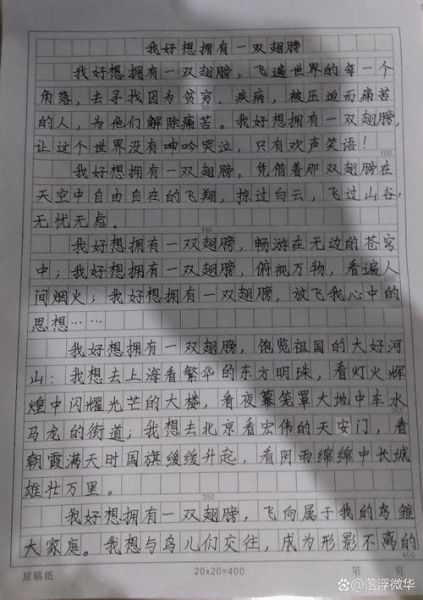 我好想拥有一双翅膀
我好想拥有一双翅膀，飞遍世界的每一个
角落，去寻找因为贫穷、疾病，被压迫而痛苦
的人，为他们解除痛苦。我好想拥有一双翅膀，
让这个世界没有呻吟哭泣，只有欢声笑语！
100
我好想拥有一双翅膀，凭借着那双翅膀在
天空中自由自在的飞翔，掠过白云，飞过山谷，
无忧无虑。
我好想拥有一双翅膀，畅游在无边的苍穹
中；我好想拥有一双翅膀，俯视万物，看遍人
间烟火；我好想拥有一双翅膀，放飞我心中的
思想……
我好想拥有一双翅膀，饱览祖国的大好河
山：我想去上海看繁华的东方明珠，看灯火辉
煌中闪耀光芒的大楼，看夜幕笼罩大地中车水
马龙的街道；我想去北京看宏伟的天安门，看
朝霞满天时国旗缓缓升起，看阴雨绵绵中长城
雄壮万里。
我好想拥有一双翅膀，飞向属于我的鸟雏
大家庭。我想与鸟儿们交往，成为形影不离的
400
原稿纸 20x20=400 第 页
@落浮微华